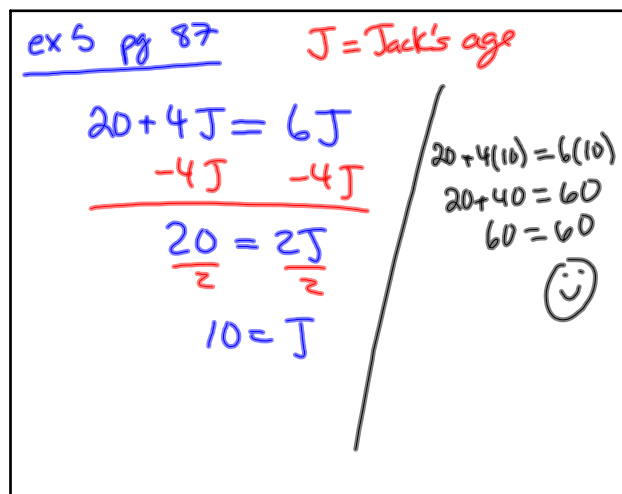 ex 5 pg 87
J = Jack's age
20 + 4J = 6J
-4J -4J
20 = 2J
2 2
10 = J
20 + 4(10) = 6(10)
20 + 40 = 60
60 = 60